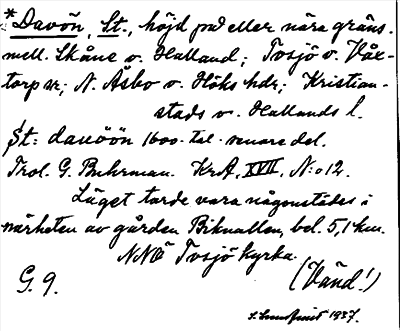 * Davön, St., höjd på eller nära gräns.
mell. Skåne o. Halland; Tosjö o. Våx-
torp sr; N. Åsbo o. Höks hdr; Kristian-
stads o. Hallands l.
St: davöön 1600-tal. senare del.
Trol. G. Buhrman. KrA, XVII, N:o 12.
Läget torde vara någonstädes i
närheten av gården Biknallen, bel. 5,1 km.
NNÖ Tosjö kyrka.
G. 9. (Vänd!)
1937.